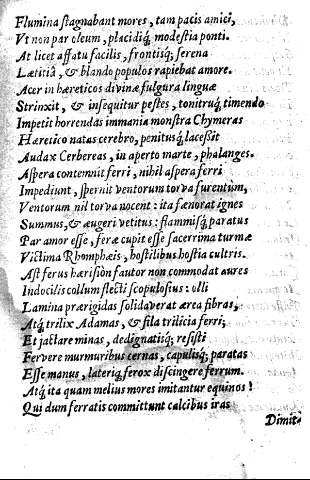 Flumina ſtagnabant mores, tam pacis amici,
Vt non par oleum, placidiq́; modeſtia ponti.
At licet affatu facilis, frontiſq́; ſerena
Lætitia, & blando populos rapiebat amore.
Acer in hæreticos divinæ fulgura linguæ
Strinxit, & inſequitur peſtes, tonitruq́; timendo
Impetit horrendas immania monſtra Chymeras
Hæretico natas cerebro, penituſq́; laceſſit
Audax Cerbereas, in aperto marte, phalanges.
Aſpera contemnit ferri, nihil aſpera ferri
Impediunt, ſpernit ventorum torva furentûm,
Ventorum nil torva nocent: ita fænorat ignes
Summus, & augeri vetitus: flammiſq́; paratus
Par amor eſſe, feræ cupit eſſe ſacerrima turmæ
Victima Rhomphæis, hoſtilibus hoſtia cultris.
Aſt ferus hæriſôn fautor non commodat aures
Indocilis collum flecti ſcopuloſius: olli
Lamina prærigidas ſolidaverat ærea fibras,
Atq́; trilix Adamas, & fila trilicia ferri;
Et jactare minas, dedignatiſq́; reſiſti
Fervere murmuribus cernas, capuliſq́; paratas
Eſſe manus, lateriq́; ferox diſcingere ferrum.
Atq́; ita quam melius mores imitantur equinos!
Qui dum ferratis committunt calcibus iras
Dimit-